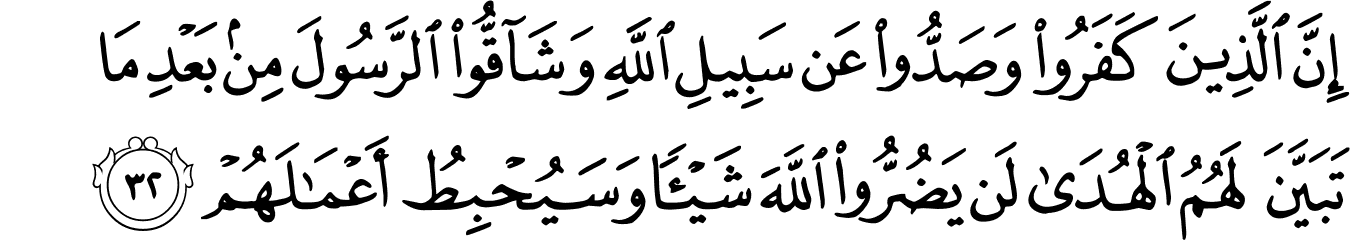 إِنَّ ٱلَّذِينَ كَفَرُوا۟ وَصَدُّوا۟ عَن سَبِيلِ ٱللَّهِ وَشَآقُّوا۟ ٱلرَّسُولَ مِنۢ بَعْدِ مَا
تَبَيَّنَ لَهُمُ ٱلْهُدَىٰ لَن يَضُرُّوا۟ ٱللَّهَ شَيْـًٔا وَسَيُحْبِطُ أَعْمَـٰلَهُمْ ٣٢